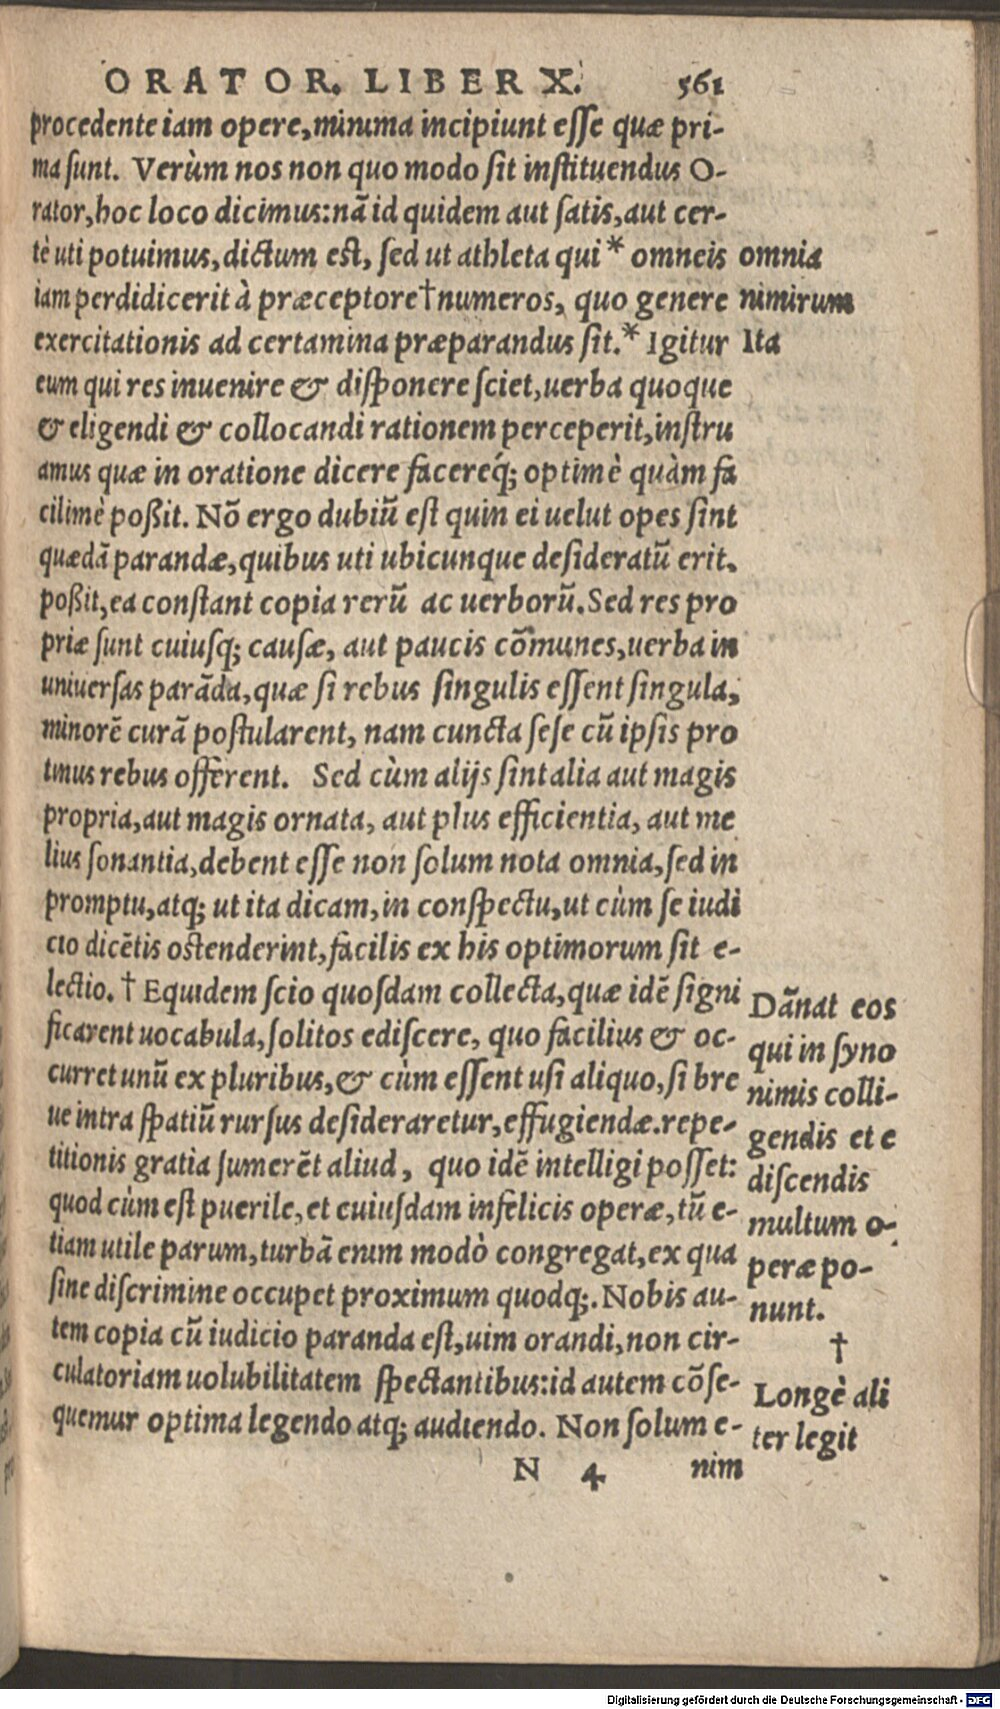 ORATOR. LIBER X. 561
procedente iam opere, minima incipiunt esse quæ pri-
ma sunt. Verùm nos non quo modo sit instituendus O-
rator, hoc loco dicimus: nā id quidem aut satis, aut cer-
tè uti potuimus, dictum est, sed ut athleta qui * omneis
iam perdidicerit à præceptore † numeros, quo genere
exercitationis ad certamina præparandus sit. * Igitur
eum qui res inuenire & disponere sciet, uerba quoque
& eligendi & collocandi rationem perceperit, instru
amus quæ in oratione dicere facereq́; optimè quàm fa
cilimè poßit. Nō ergo dubiū est quin ei uelut opes sint
quædā parandæ, quibus uti ubicunque desideratū erit.
poßit, ea constant copia rerū ac uerborū. Sed res pro
priæ sunt cuiusq; causæ, aut paucis cōmunes, uerba in
uniuersas parāda, quæ si rebus singulis essent singula,
minorē curā postularent, nam cuncta sese cū ipsis pro
tinus rebus offerent. Sed cùm alijs sint alia aut magis
propria, aut magis ornata, aut plus efficientia, aut me
lius sonantia, debent esse non solum nota omnia, sed in
promptu, atq; ut ita dicam, in conspectu, ut cùm se iudi
cio dicētis ostenderint, facilis ex his optimorum sit e-
lectio. † Equidem scio quosdam collecta, quæ idē signi
ficarent uocabula, solitos ediscere, quo facilius & oc-
curret unū ex pluribus, & cùm essent usi aliquo, si bre
ue intra spatiū rursus desideraretur, effugiendæ. repe-
titionis gratia sumerēt aliud, quo idē intelligi posset:
quod cùm est puerile, et cuiusdam infelicis operæ, tū e-
tiam utile parum, turbā enim modò congregat, ex qua
sine discrimine occupet proximum quodq;. Nobis au-
tem copia cū iudicio paranda est, uim orandi, non cir-
culatoriam uolubilitatem spectantibus: id autem cōse-
quemur optima legendo atq; audiendo. Non solum e-
N 4 nim
omnia
nimirum
Ita
Dānat eos
qui in syno
nimis colli-
gendis et e
discendis
multum o-
peræ po-
nunt.
†
Longè ali
ter legit
Digitalisierung gefördert durch die Deutsche Forschungsgemeinschaft - DFG